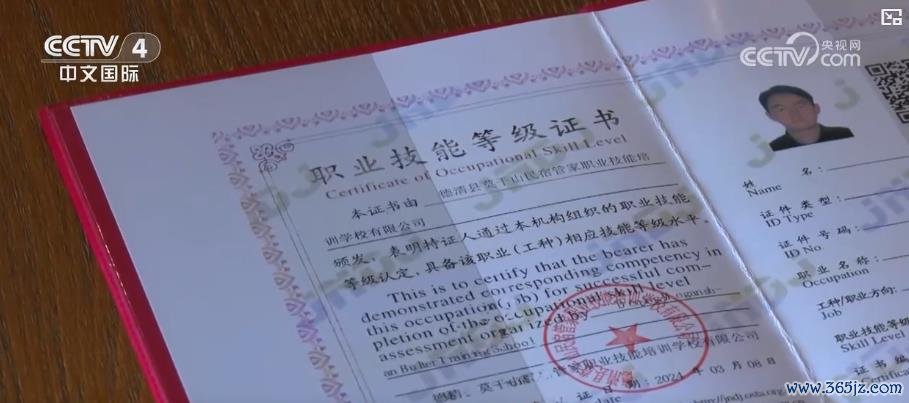 CCTV 4
中文国际
央视网
CCTV.com
职业技能等级证书
Certificate of Occupational Skill Level
本证书由 德清县莫干山民宿管家职业技能培
训学校有限公司
颁发，表明持证人通过本机构组织的职业技能
等级认定，具备该职业(工种)相应技能等级水平。
This is to certify that the bearer has
demonstrated corresponding competency in
this occupation (job) for successful com-
pletion of the occupational skill level
assessment organized by
an Butler Training School
管家职业技能培训学校有限公司
2024 年 03 月 08
姓 名：
Name
证件类型：
ID Type
证件号码：
ID No.
职业名称：
Occupation
工种/职业方向：
Job
职业技能等级
Skill Level
证书编
Certificate
www.365jz.com